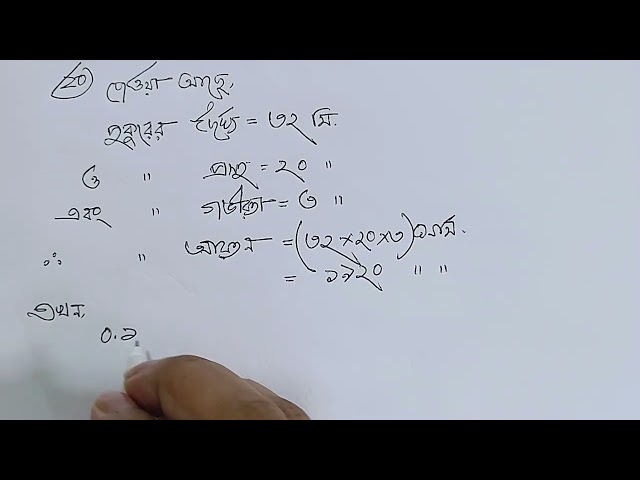 ২০) দেওয়া আছে,
পুকুরের দৈর্ঘ্য = ৩২ মি.
ও " প্রস্থ = ২০ "
এবং " গভীরতা = ৩ "
∴ " আয়তন = (৩২×২০×৩) ঘনমি.
= ১৯২০ " "
এখন,
০.১